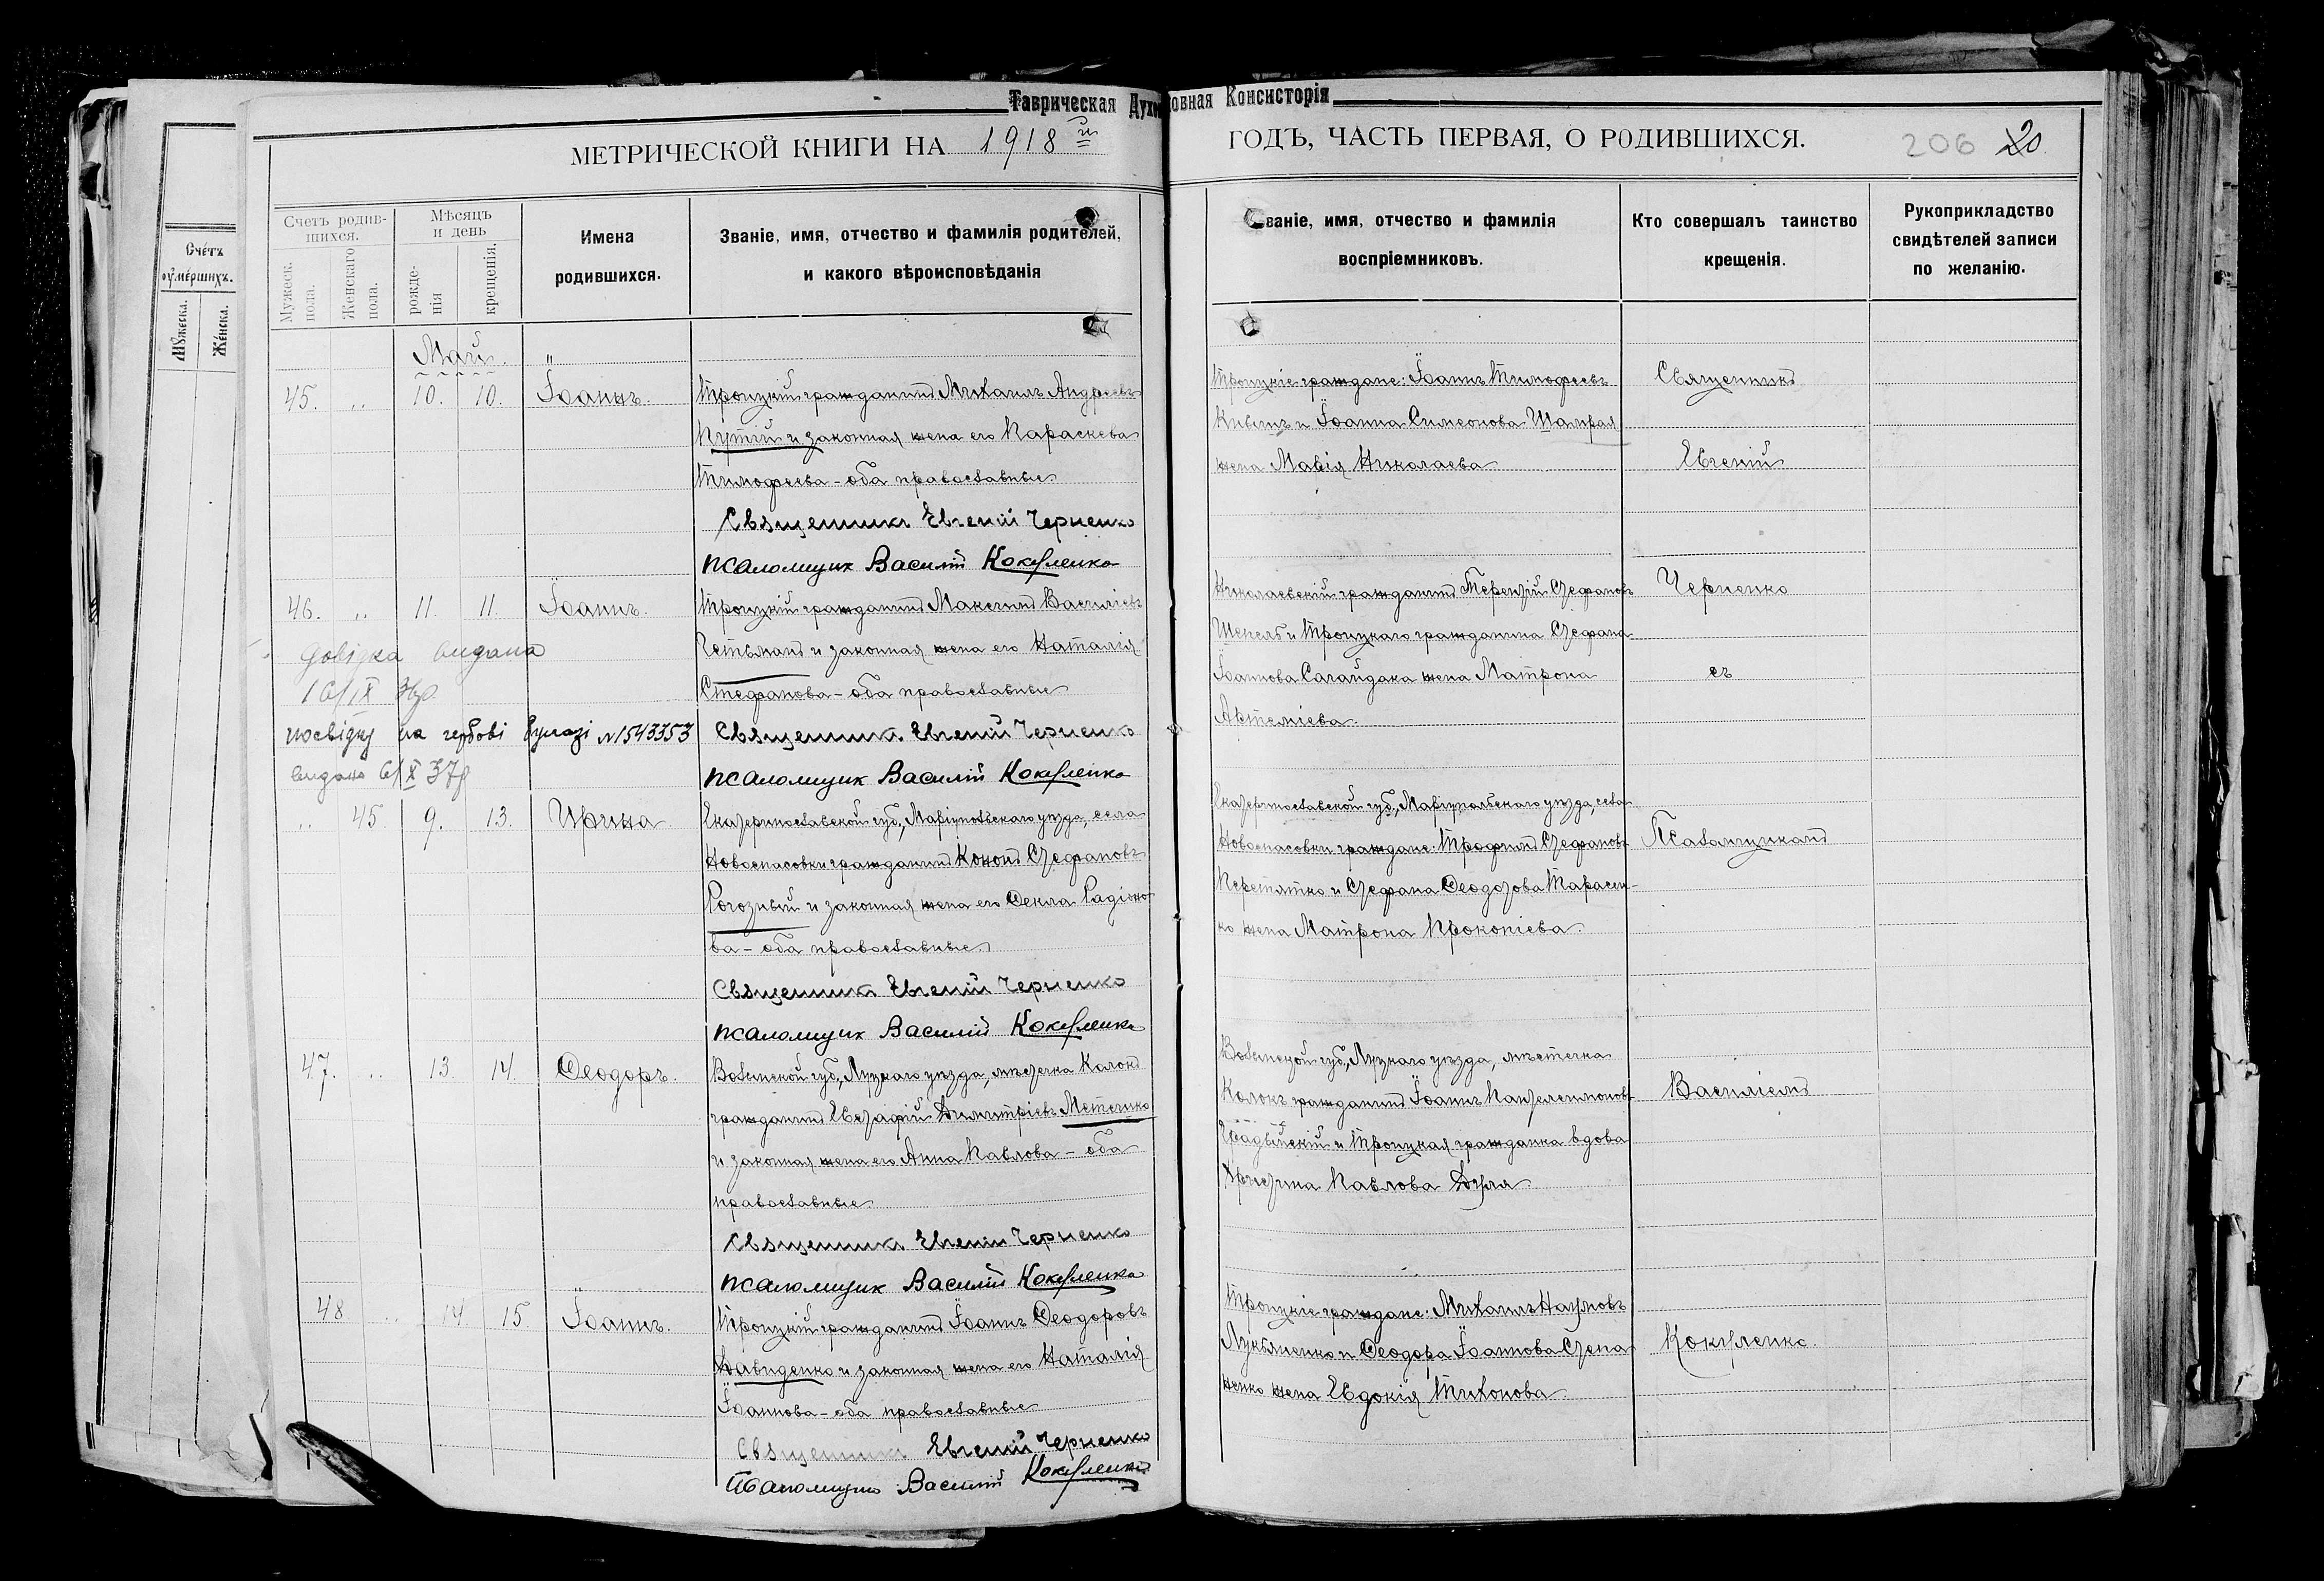 Таврическая Духовная Консисторія
МЕТРИЧЕСКОЙ КНИГИ НА 1918 й
ГОДЪ, ЧАСТЬ ПЕРВАЯ, О РОДИВШИХСЯ.
206 20
Счетъ умершихъ.
Мужеска.
Женска.
Счетъ родившихся.
Мужеск. пола.
Женскаго пола.
Мѣсяцъ и день
рожденія
крещенія.
Имена родившихся.
Званіе, имя, отчество и фамилія родителей,
и какого вѣроисповѣданія
Званіе, имя, отчество и фамилія
воспріемниковъ.
Кто совершалъ таинство
крещенія.
Рукоприкладство
свидѣтелей записи
по желанію.
Май
45. „ 10. 10. Іоаннъ.
Троицкій гражданинъ Михаилъ Андреевъ
Кутій и законная жена его Параскева
Тимофеева – оба православные
Священникъ Евгеній Черненко
псаломщик Василій
46. „ 11. 11. Іоаннъ.
Троицкій гражданинъ Максимъ Василіевъ
Гетьманъ и законная жена его Наталія
Стефанова – оба православные
Священникъ Евгеній Черненко
псаломщик Василій
видана
16/IX
посвідку на гербові бумазі N1543353
видано 6/X 37р
„ 45 9. 13. Ирина
Екатеринославской губ., Маріупольскаго уѣзда, села
Новоспасовки гражданинъ Кононъ Стефановъ
Рогозный и законная жена его Текла Радіоно-
ва – оба православные
Священникъ Евгеній Черненко
псаломщик Василій
47. „ 13. 14. Ѳеодоръ.
Волынской губ., Луцкаго уѣзда, мѣстечка Колокъ
гражданинъ Евстафій Димитріевъ
и законная жена его Анна Павлова – оба
православные
Священникъ Евгеній Черненко
псаломщик Василій
48 „ 14. 15 Іоаннъ.
Троицкій гражданинъ Іоаннъ Ѳеодоровъ
Давиденко и законная жена его Наталія
Іоаннова – оба православные
Священникъ Евгеній Черненко
Псаломщик Василій
Троицкіе граждане: Іоаннъ Тимофеевъ
и Іоанна Симеонова Шамрая
жена Марія Николаева
Николаевскій гражданинъ Терентій Стефановъ
и Троицкаго гражданина Стефана
Іоаннова Сагайдака жена Матрона
Артеміева
Екатеринославской губ., Маріупольскаго уѣзда, села
Новоспасовки граждане: Трофимъ Стефановъ
Перетятко и Стефана Ѳеодорова Тарасен-
ко жена Матрона Прокопіева
Волынской губ., Луцкаго уѣзда, мѣстечка
Колокъ гражданинъ Іоаннъ Пантелеимоновъ
и Троицкая гражданка вдова
Христина Павлова Дуля
Троицкіе граждане: Михаилъ Наумовъ
Лукьяненко и Ѳеодора Іоаннова Степа-
ненко жена Евдокія Тихонова
Священникъ
Евгеній
Черненко
съ
Псаломщикомъ
Василіемъ